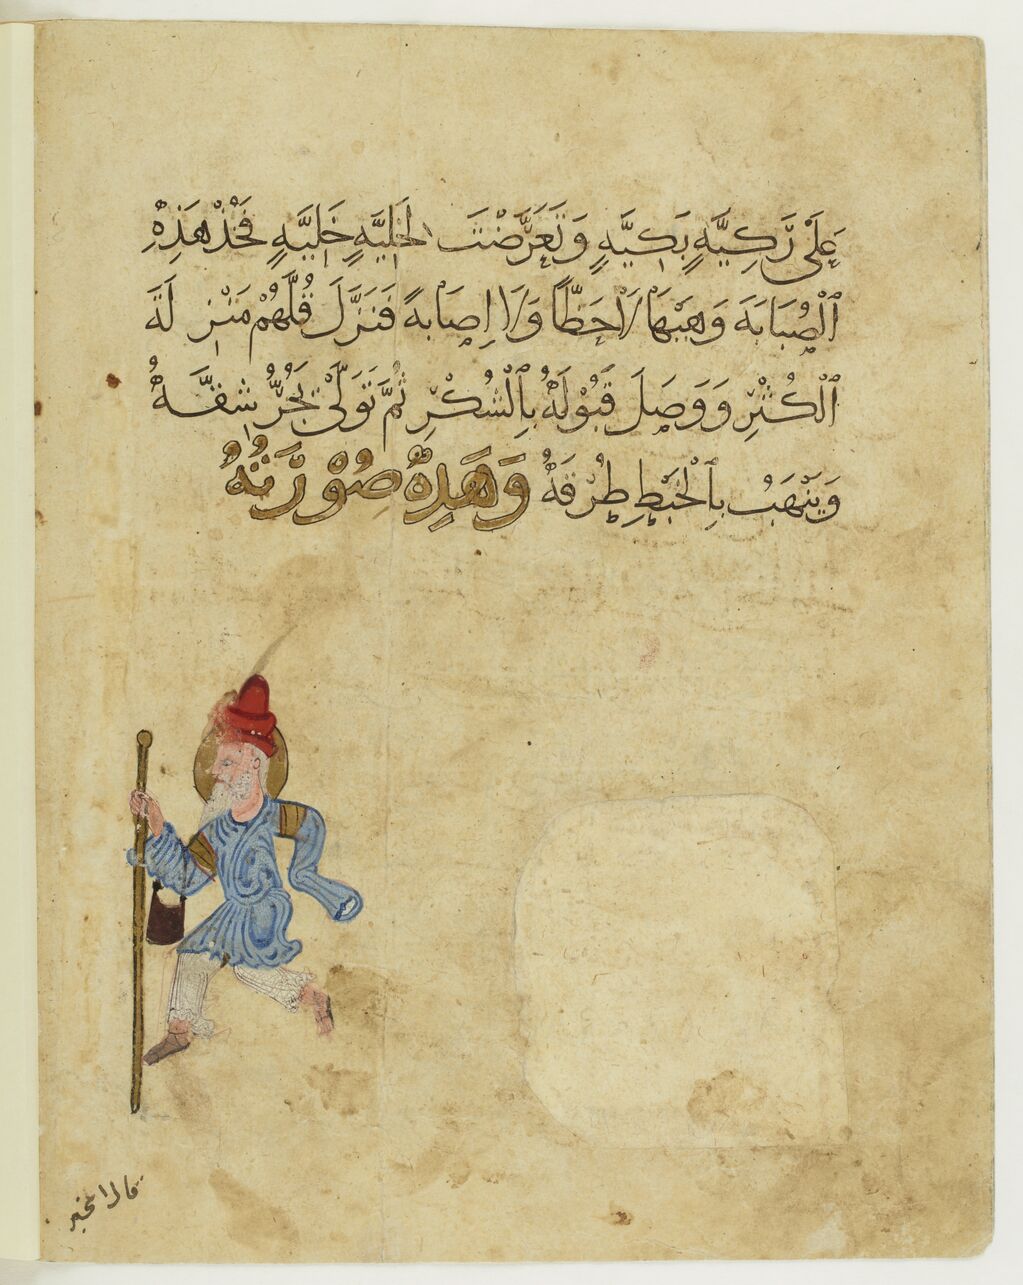 عَلَى رَكِيَّةٍ بَكِيَّةٍ وَتَعَرَّضْتَ لِخَلِيَّةٍ خَلِيَّةٍ فَخُذْ هَذِهِ
ٱلْصُبَابَةَ وَهَبْهَا لَاْ خَطَأً وَلَا إِصَابَةً فَنَزَّلَ قُلَّهُمْ مَنْزِلَةَ
ٱلْكُثْرِ وَوَصَلَ قَبُولَهُ بِٱلْشُكْرِ ثُمَّ تَوَلَّىْ يَجُرُّ شِقَّهُ
وَيَنْهَبُ بِٱلْخَبْطِ طُرْقَهُ وَهَذِهِ صُوْرَتُهُ
قال المخبر